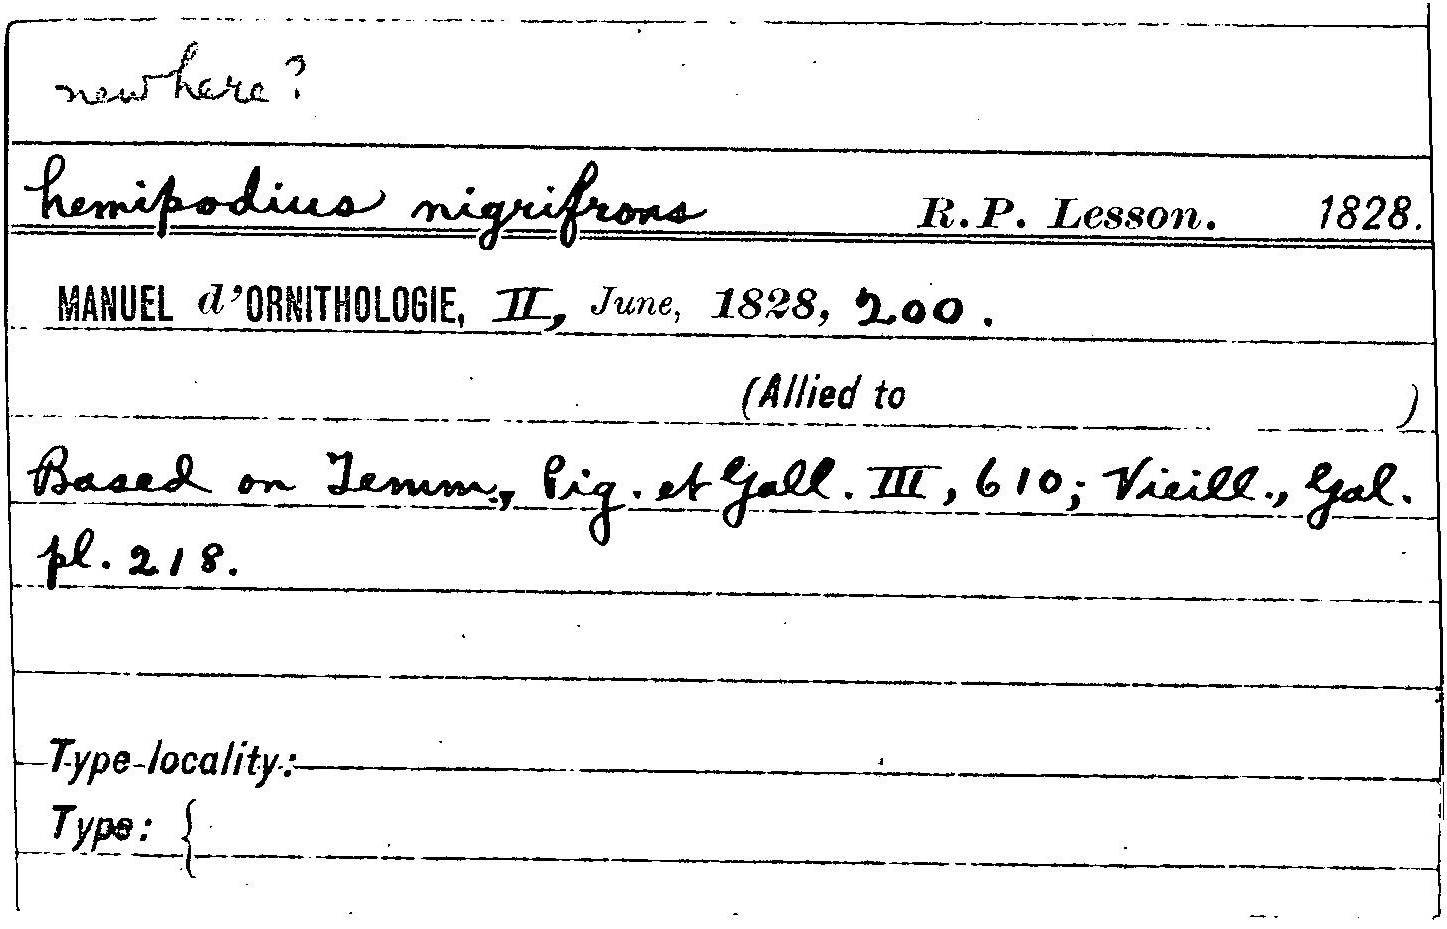 new here?
hemipodius nigrifrons R. P. Lesson. 1828.
MANUEL d'ORNITHOLOGIE, II, June, 1828, 200.
(Allied to )
Based on Temm., Pig. et Gall. III, 610; Vieill., Gal.
pl. 218.
Type-locality:
Type: {